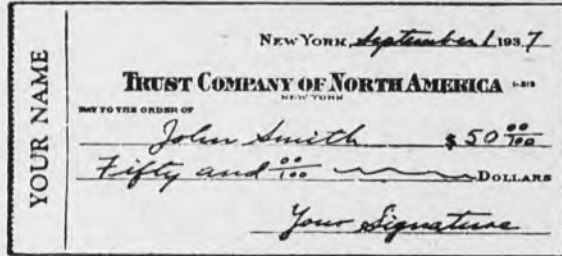 YOUR NAME
NEW YORK, September 1 1937
TRUST COMPANY OF NORTH AMERICA
NEW YORK
PAY TO THE ORDER OF
John Smith $ 50 00/100
Fifty and 00/100 DOLLARS
Your Signature